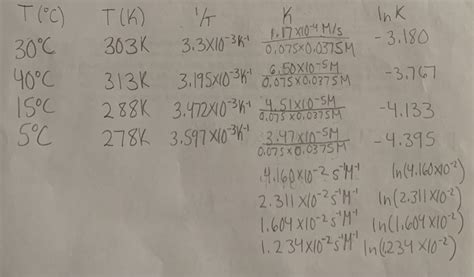 T(°C) T(K) 1/T K lnK
30°C 303K 3.3x10⁻³K⁻¹ 1.17x10⁻⁴M/s / 0.075x0.0375M -3.180
40°C 313K 3.195x10⁻³K⁻¹ 6.50x10⁻⁵M / 0.075x0.0375M -3.767
15°C 288K 3.472x10⁻³K⁻¹ 4.51x10⁻⁵M / 0.075x0.0375M -4.133
5°C 278K 3.597x10⁻³K⁻¹ 3.47x10⁻⁵M / 0.075x0.0375M -4.395
4.160x10⁻²s⁻¹M⁻¹ ln(4.160x10⁻²)
2.311x10⁻²s⁻¹M⁻¹ ln(2.311x10⁻²)
1.604x10⁻²s⁻¹M⁻¹ ln(1.604x10⁻²)
1.234x10⁻²s⁻¹M⁻¹ ln(1.234x10⁻²)